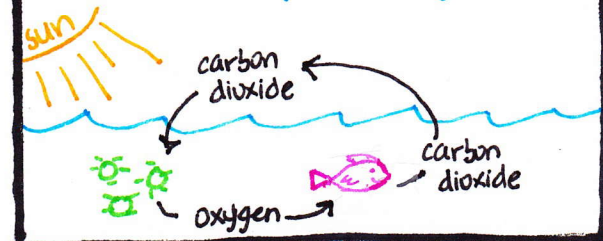 sun
carbon
dioxide
carbon
dioxide
oxygen